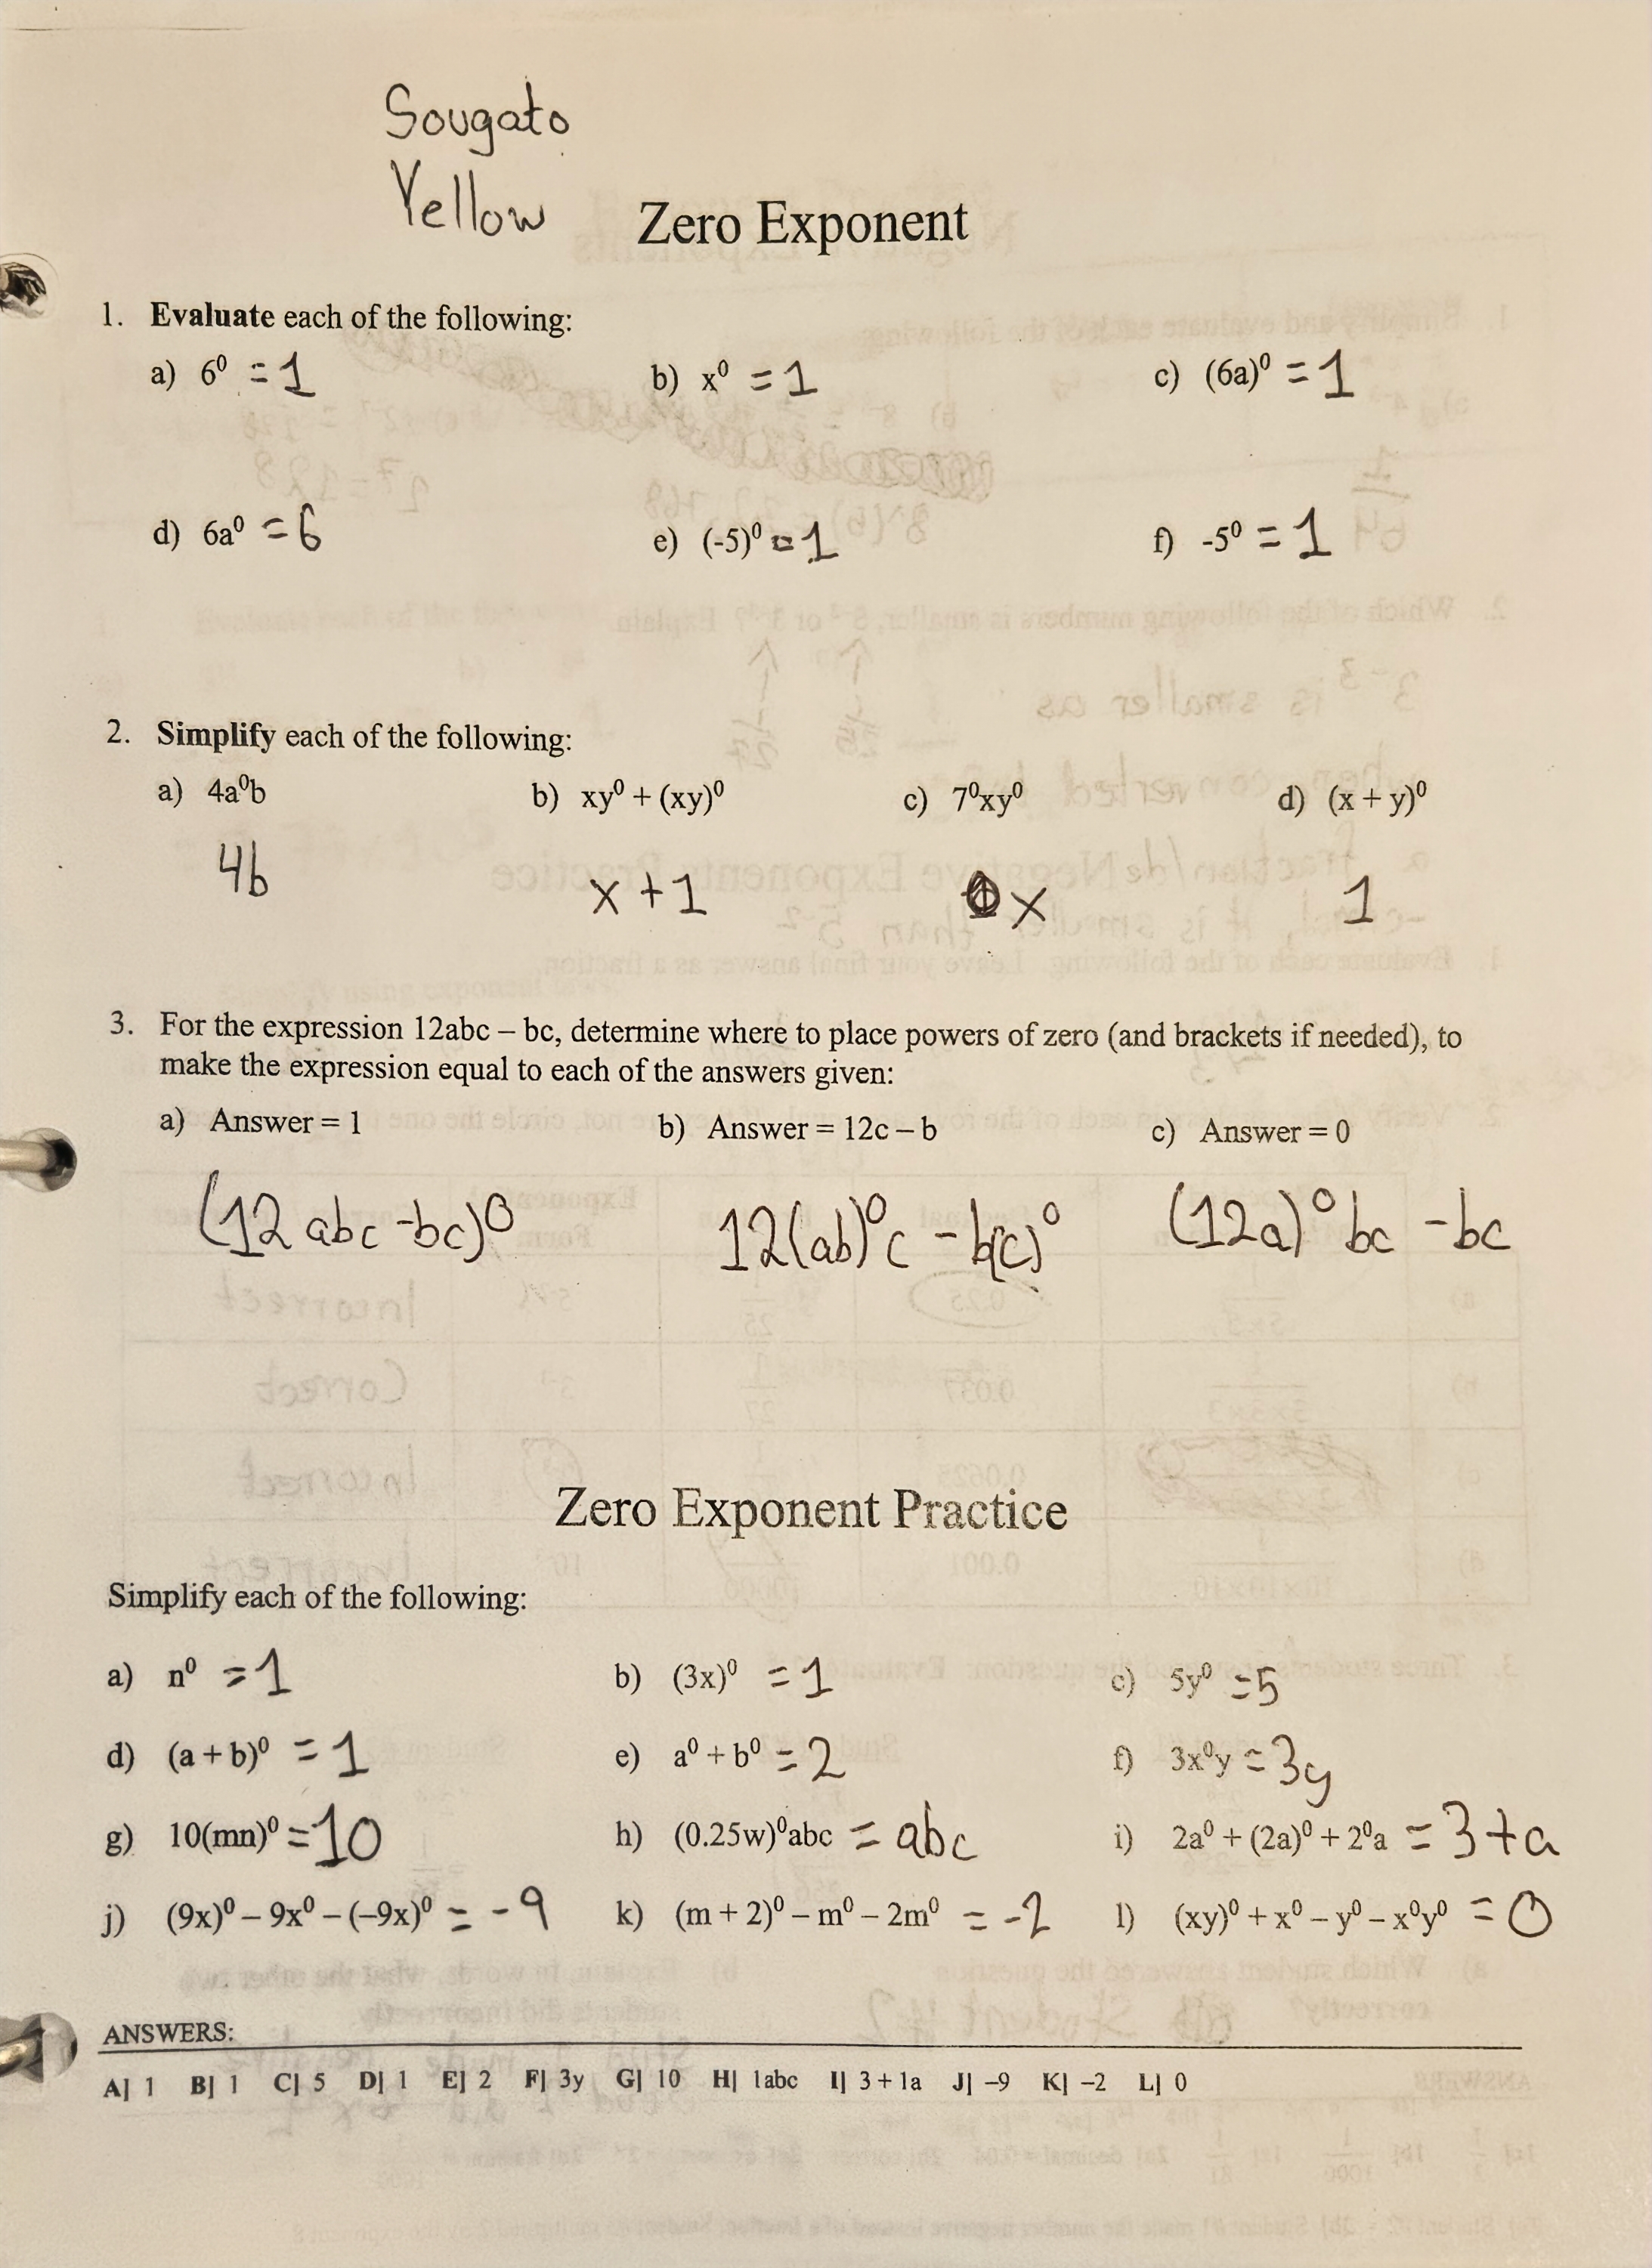 Sougato
Yellow
Zero Exponent
1. Evaluate each of the following:
a) 6⁰ = 1 b) x⁰ = 1 c) (6a)⁰ = 1
d) 6a⁰ = 6 e) (-5)⁰ = 1 f) -5⁰ = 1
2. Simplify each of the following:
a) 4a⁰b b) xy⁰ + (xy)⁰ c) 7⁰xy⁰ d) (x + y)⁰
4b x + 1 x 1
3. For the expression 12abc – bc, determine where to place powers of zero (and brackets if needed), to
make the expression equal to each of the answers given:
a) Answer = 1 b) Answer = 12c – b c) Answer = 0
(12abc -bc)⁰ 12(ab)⁰c - b(c)⁰ (12a)⁰bc - bc
Zero Exponent Practice
Simplify each of the following:
a) n⁰ = 1 b) (3x)⁰ = 1 c) 5y⁰ = 5
d) (a + b)⁰ = 1 e) a⁰ + b⁰ = 2 f) 3x⁰y = 3y
g) 10(mn)⁰ = 10 h) (0.25w)⁰abc = abc i) 2a⁰ + (2a)⁰ + 2⁰a = 3+a
j) (9x)⁰ – 9x⁰ – (–9x)⁰ = -9 k) (m + 2)⁰ – m⁰ – 2m⁰ = -2 l) (xy)⁰ + x⁰ – y⁰ – x⁰y⁰ = 0
ANSWERS:
A| 1 B| 1 C| 5 D| 1 E| 2 F| 3y G| 10 H| 1abc I| 3 + 1a J| –9 K| –2 L| 0